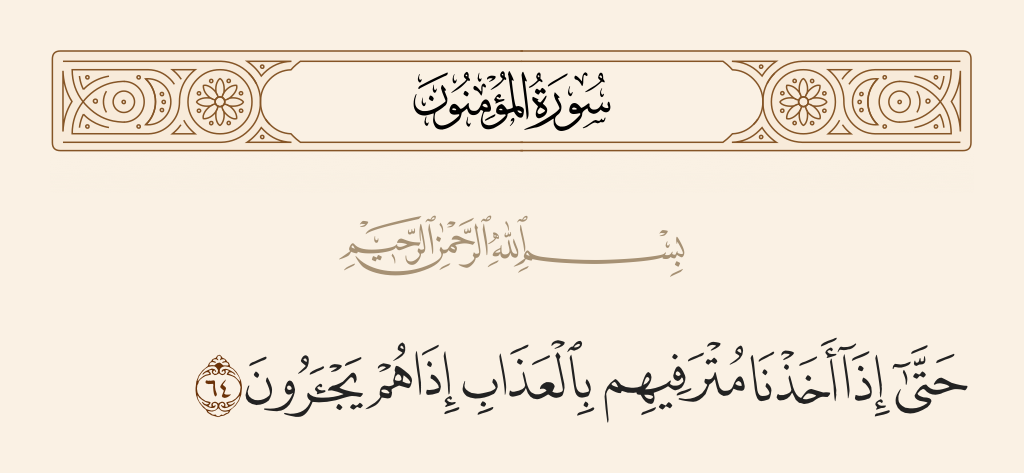 سُورَةُ الْمُؤْمِنُونَ
بِسْمِ ٱللَّهِ ٱلرَّحْمَٰنِ ٱلرَّحِيمِ
حَتَّىٰٓ إِذَآ أَخَذْنَا مُتْرَفِيهِم بِٱلْعَذَابِ إِذَا هُمْ يَجْـَٔرُونَ ٦٤